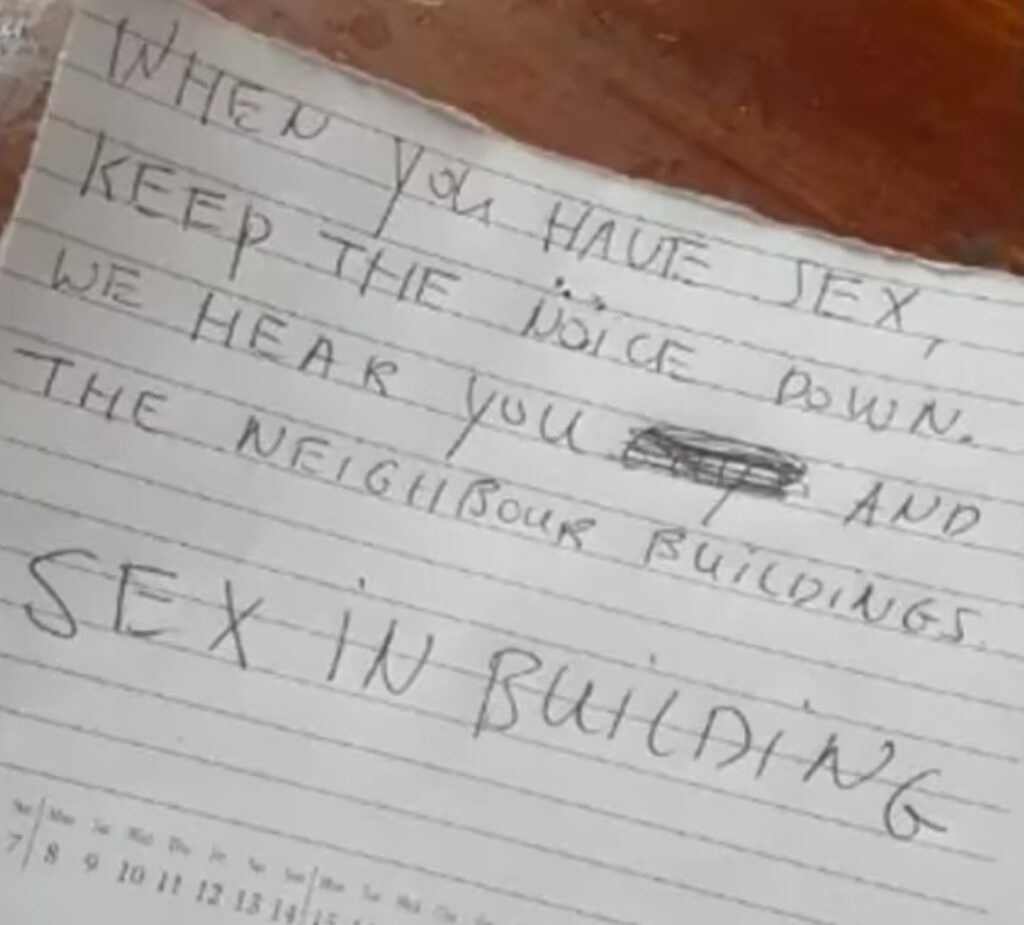 WHEN you HAVE SEX,
KEEP THE NOICE DOWN.
WE HEAR YOU AND
THE NEIGHBOUR BUILDINGS.
SEX IN BUILDING
7 8 9 10 11 12 13 14 15